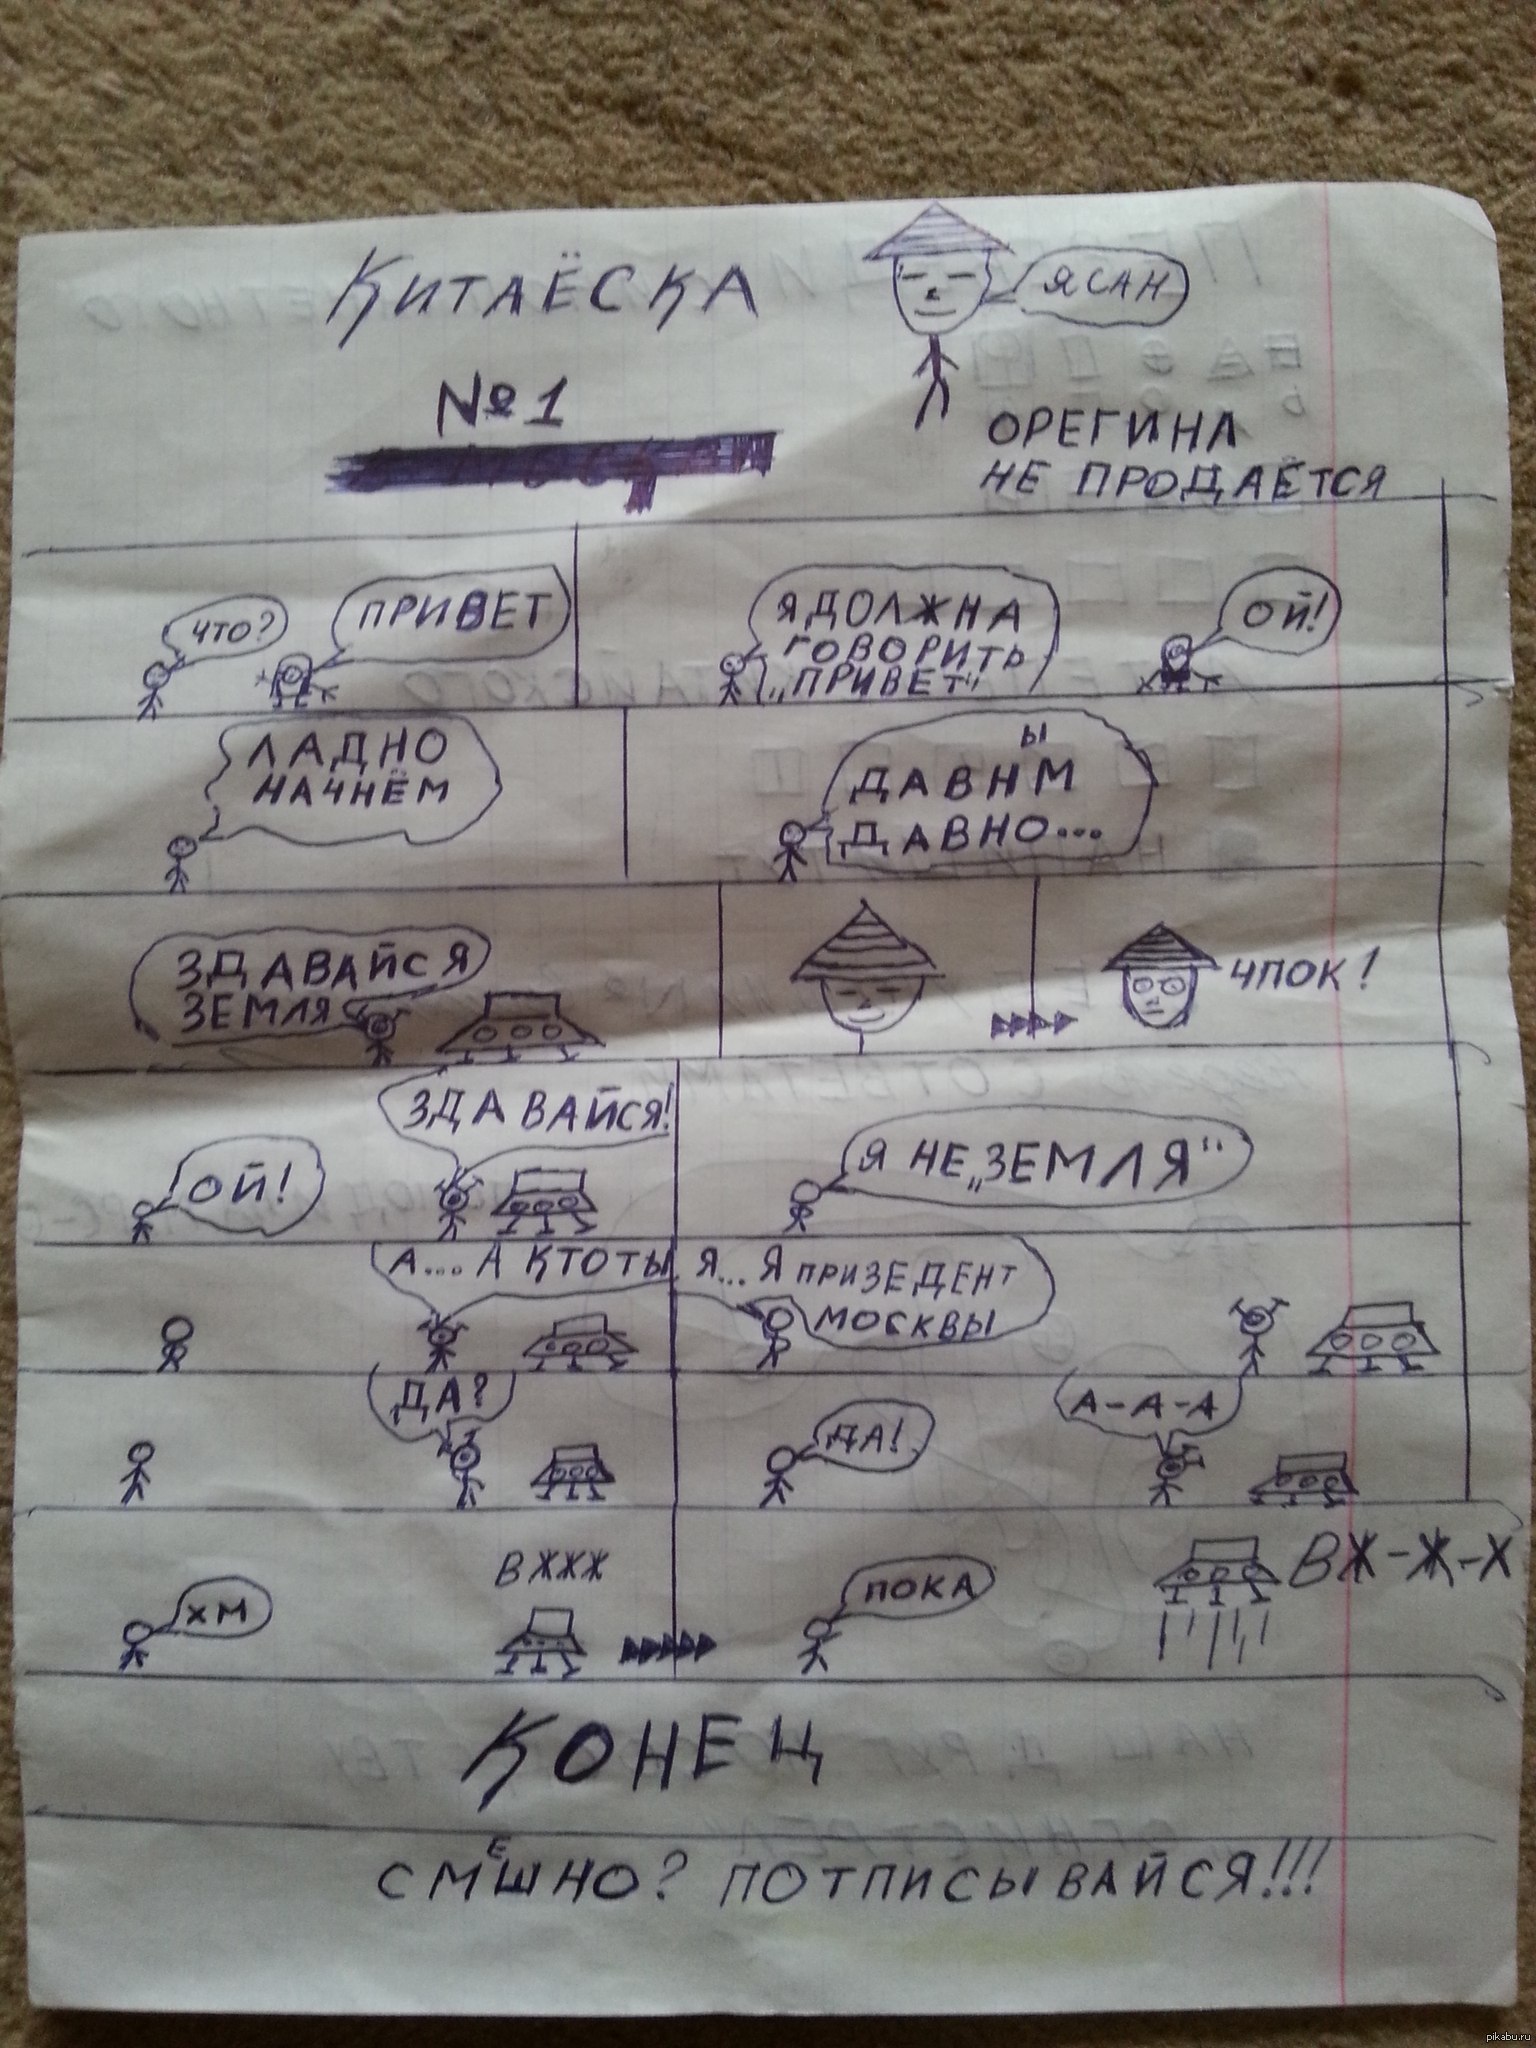 КИТАЁСКА
Я САН
№1
ОРЕГИНА
НЕ ПРОДАЁТСЯ
ЧТО?
ПРИВЕТ
Я ДОЛЖНА
ГОВОРИТЬ
„ПРИВЕТ"
ОЙ!
ЛАДНО
НАЧНЁМ
Ы
ДАВНМ
ДАВНО...
ЗДАВАЙСЯ
ЗЕМЛЯ
ЧПОК!
ОЙ!
ЗДАВАЙСЯ!
Я НЕ „ЗЕМЛЯ"
А.... А КТО ТЫ
Я... Я ПРИЗЕДЕНТ
МОСКВЫ
ДА?
ДА!
А-А-А
ХМ
ВЖЖЖ
ПОКА
ВЖ-Ж-Х
КОНЕЦ
СМЕШНО? ПОТПИСЫВАЙСЯ!!!
pikabu.ru